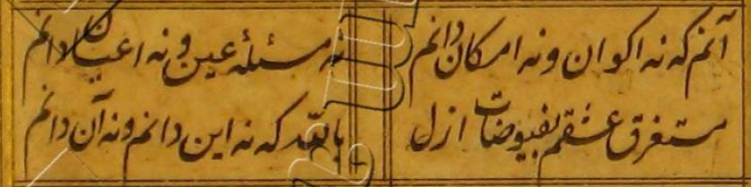 آنم که نه اکوان و نه امکان دانم
نه مسئلهٔ عین و نه اعیان دانم
مستغرق عشقم بفیوضات ازل
بالله که نه این دانم و نه آن دانم